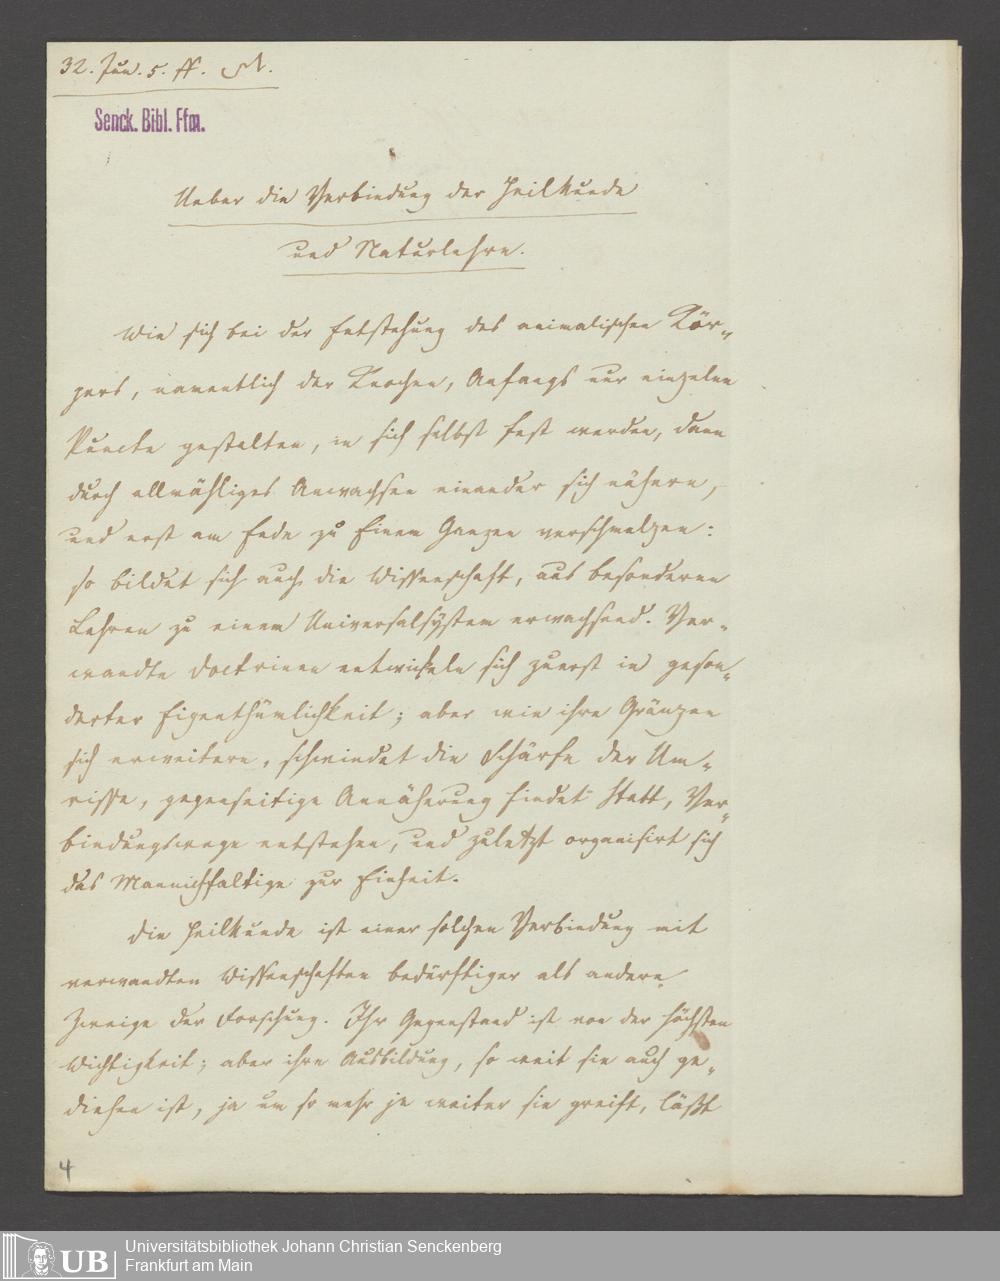 32. Jun. 5. ff.
Senck. Bibl. Ffm.
Ueber die Verbindung der Heilkunde
und Naturlehre.
Wie sich bei der Entstehung des animalischen Kör-
pers, namentlich der Knochen, Anfangs nur einzelne
Puncte gestalten, in sich selbst fest werden, dann
durch allmähliges Anwachsen einander sich nähern,
und erst am Ende zu Einem Ganzen verschmelzen:
so bildet sich auch die Wissenschaft, aus besonderen
Lehren zu einem Universalsystem erwachsend. Ver-
wandte Doctrinen entwickeln sich zuerst in geson-
derter Eigenthümlichkeit; aber wie ihre Gränzen
sich erweitern, schwindet die Schärfe der Um-
risse, gegenseitige Annäherung findet Statt, Ver-
bindungswege entstehen, und zuletzt organisirt sich
das Mannichfaltige zur Einheit.
Die Heilkunde ist einer solchen Verbindung mit
verwandten Wissenschaften bedürftiger als andere
Zweige der Forschung. Ihr Gegenstand ist von der höchsten
Wichtigkeit; aber ihre Ausbildung, so weit sie auch ge-
diehen ist, ja um so mehr je weiter sie greift, läßt
4
UB
Universitätsbibliothek Johann Christian Senckenberg
Frankfurt am Main